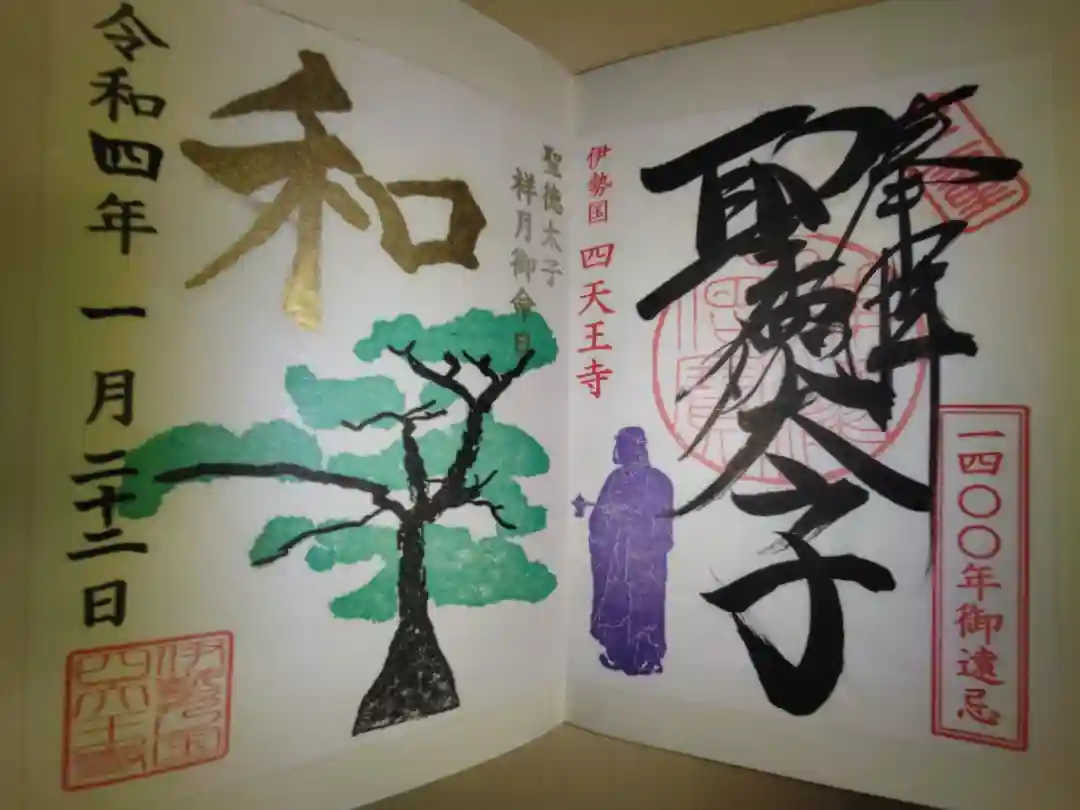 一四〇〇年御遠忌
奉拝
聖徳太子
伊勢国 四天王寺
聖徳太子
祥月御命日
和
令和四年 一月二十二日
伊勢国
四天王寺